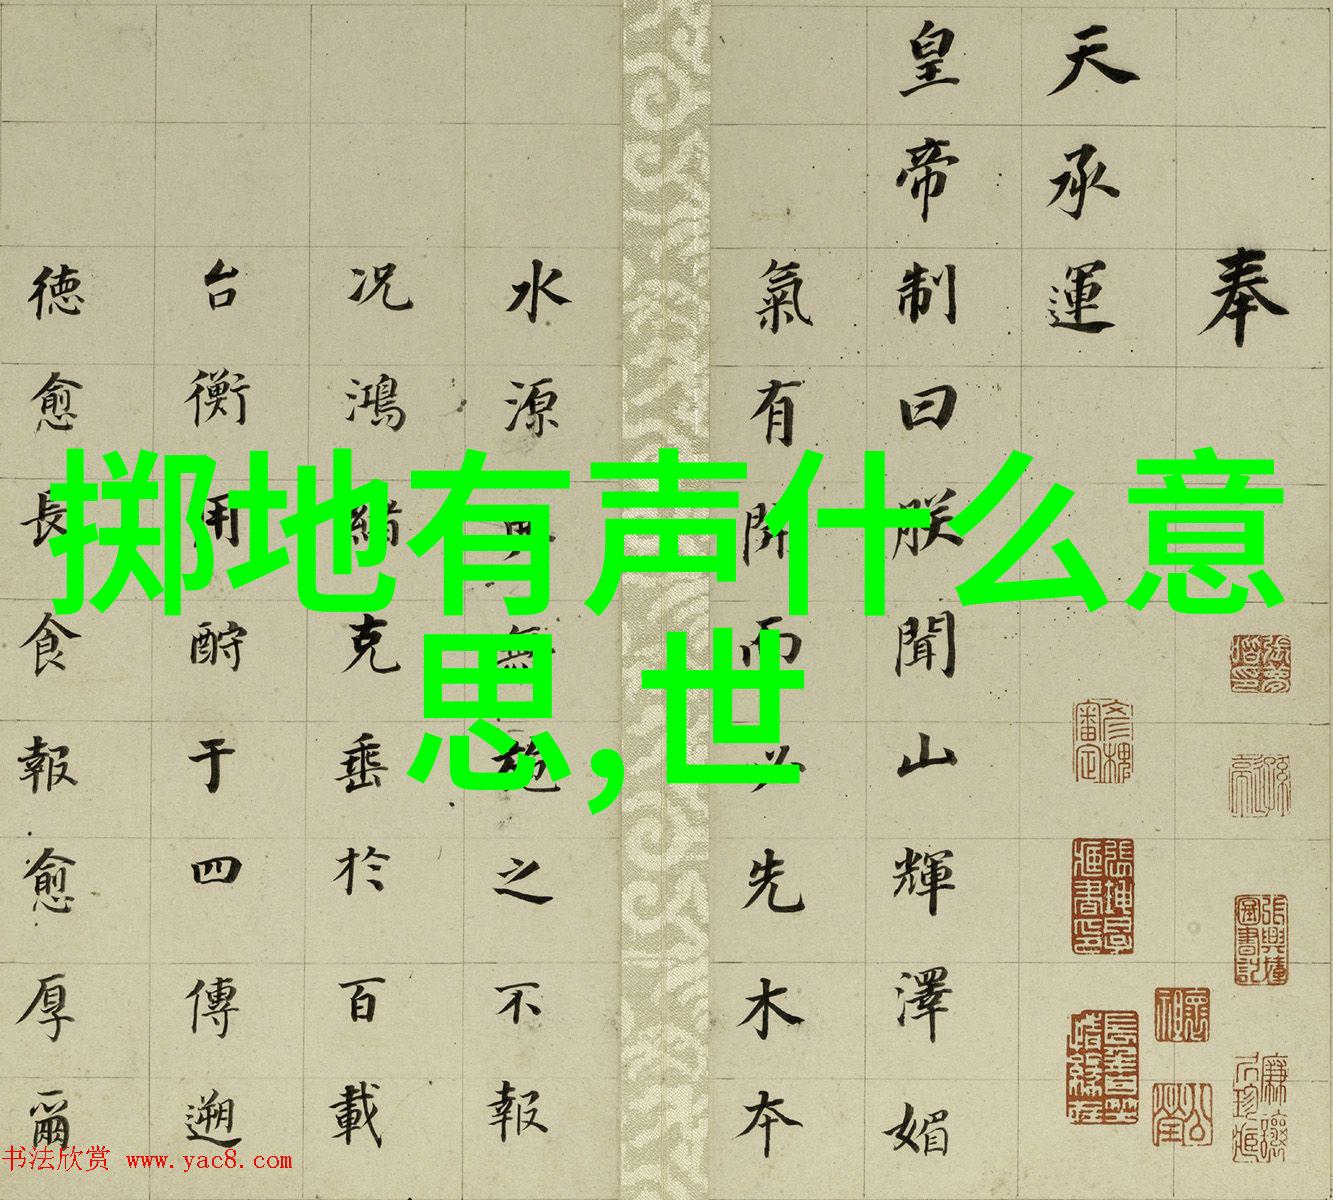 掷地有声什么意
思,世
奉
天承運
皇帝制曰朕聞山輝澤媚
氣有開而必先木本
水源無之不報
况鴻緒克垂於百載
台衡用于四傳遡
德愈長食報愈厚爾
书法欣赏 www.yac8.com